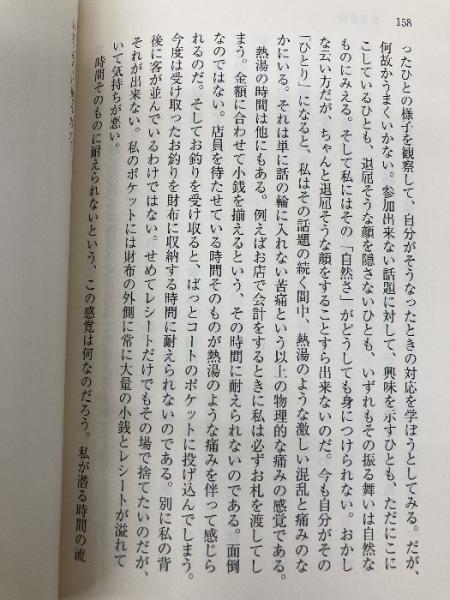 158
ったひとの様子を観察して、自分がそうなったときの対応を学ぼうとしてみる。だが、
何故かうまくいかない。参加出来ない話題に対して、興味を示すひとも、ただにこに
こしているひとも、退屈そうな顔を隠さないひとも、いずれもその振る舞いは自然な
ものにみえる。そして私にはその「自然さ」がどうしても身につけられない。おかし
な云い方だが、ちゃんと退屈そうな顔をすることすら出来ないのだ。今も自分がその
「ひとり」になると、私はその話題の続く間中、熱湯のような激しい混乱と痛みのな
かにいる。それは単に話の輪に入れない苦痛という以上の物理的な痛みの感覚である。
熱湯の時間は他にもある。例えばお店で会計をするときに私は必ずお札を渡してし
まう。金額に合わせて小銭を揃えるという、その時間に耐えられないのである。面倒
なのではない。店員を待たせている時間そのものが熱湯のような痛みを伴って感じら
れるのだ。そしてお釣りを受け取ると、ばっとコートのポケットに投げ込んでしまう。
今度は受け取ったお釣りを財布に収納する時間に耐えられないのである。別に私の背
後に客が並んでいるわけではない。せめてレシートだけでもその場で捨てたいのだが、
それが出来ない。私のポケットには財布の外側に常に大量の小銭とレシートが溢れて
いて気持ちが悪い。
時間そのものに耐えられないという、この感覚は何なのだろう。私が潜る時間の流